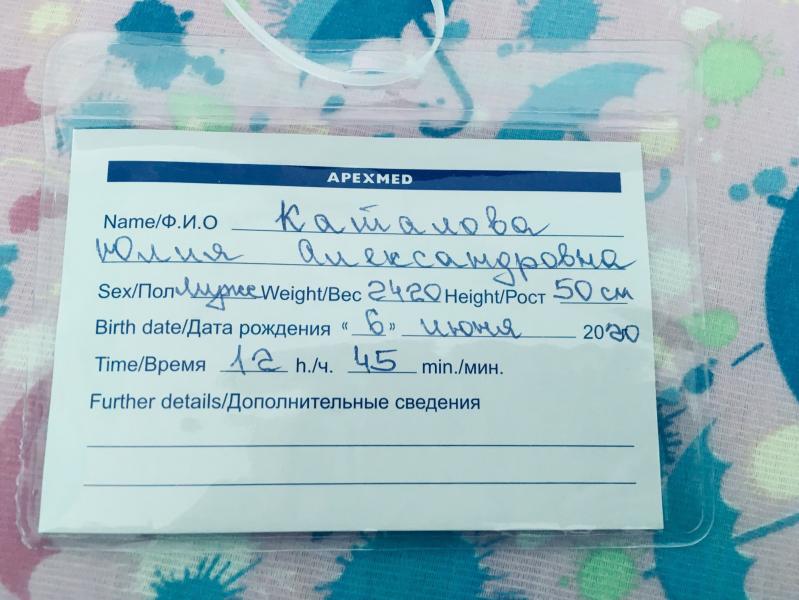 APEXMED
Name/Ф.И.О Каталова
Юлия Александровна
Sex/Пол Муже Weight/Вес 2420 Height/Рост 50 см
Birth date/Дата рождения « 6 » июня 2020
Time/Время 12 h./ч. 45 min./мин.
Further details/Дополнительные сведения